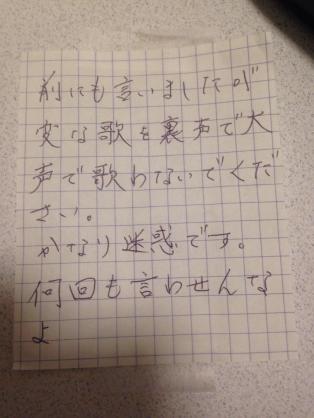 前にも言いましたが
変な歌を裏声で大
声で歌わないでくだ
さい。
かなり迷惑です。
何回も言わせんな
よ